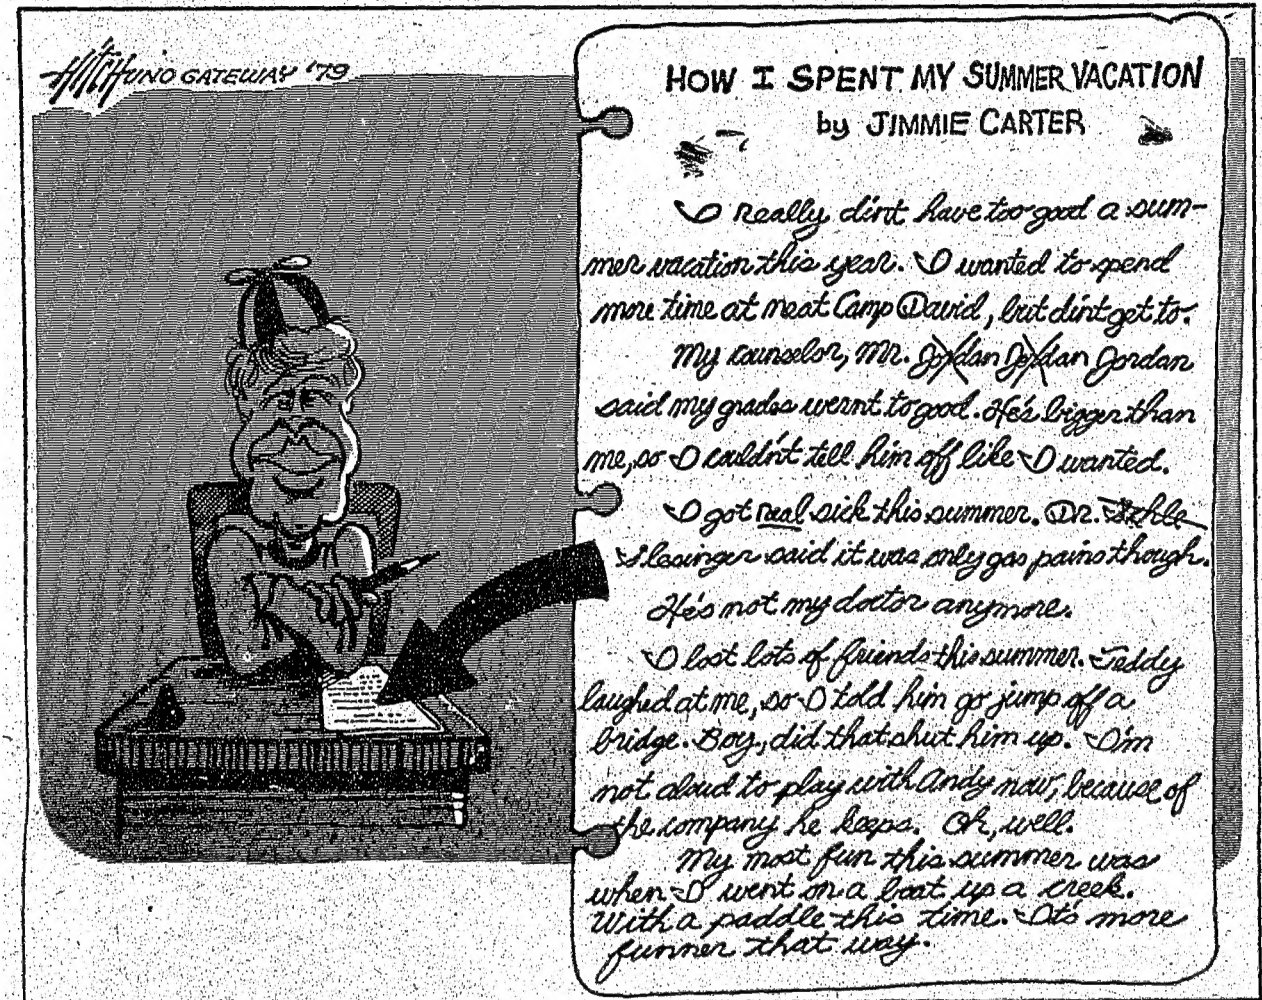 HITCH UNO GATEWAY '79
HOW I SPENT MY SUMMER VACATION
by JIMMIE CARTER
I really dint have too good a sum-
mer vacation this year. I wanted to spend
more time at neat Camp David, but dint get to.
My counselor, Mr. Jordan Jordan Jordan
said my grades wernt to good. He's bigger than
me, so I couldn't tell him off like I wanted.
I got real sick this summer. Dr. Schle
Slesinger said it was only gas pains though.
He's not my doctor anymore.
I lost lots of friends this summer. Teddy
laughed at me, so I told him go jump off a
bridge. Boy, did that shut him up. I'm
not aloud to play with Andy now, because of
the company he keeps. Oh, well.
My most fun this summer was
when I went on a boat up a creek.
With a paddle this time. It's more
funner that way.